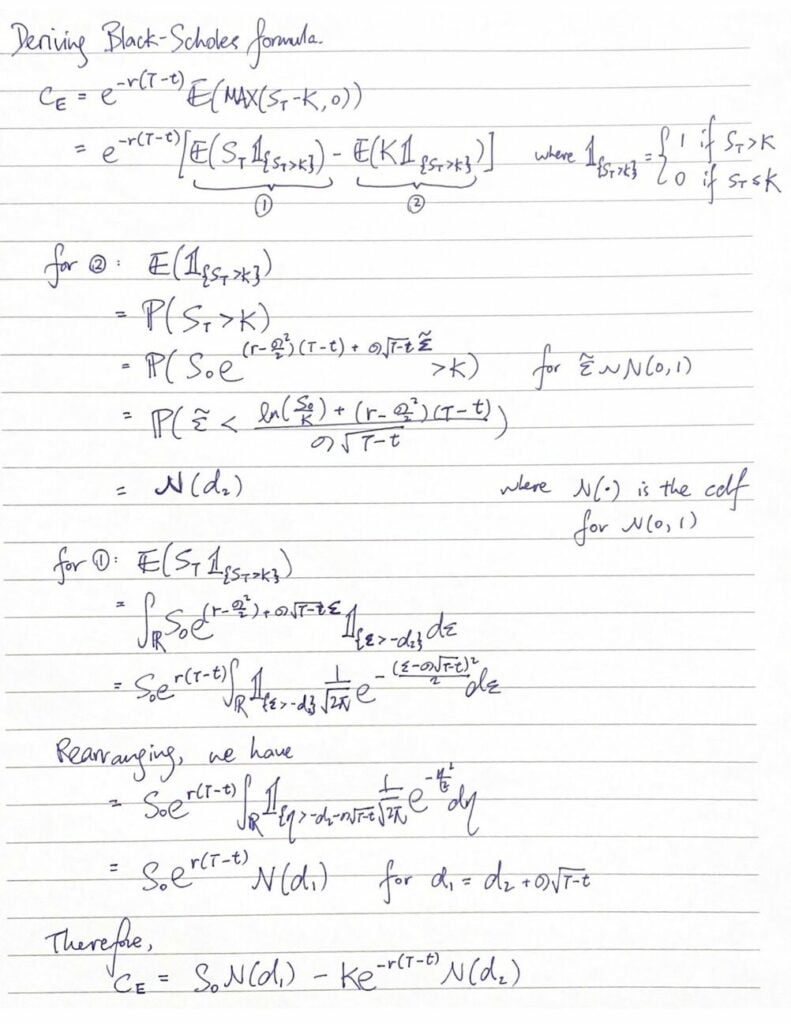 Deriving Black-Scholes formula.
C_E = e^{-r(T-t)} 𝔼(MAX(S_T-K,0))
= e^{-r(T-t)} [𝔼(S_T 𝟙_{S_T>K}) - 𝔼(K 𝟙_{S_T>K})] where 𝟙_{S_T>K} = { 1 if S_T>K
0 if S_T≤K
① ②
for ②: 𝔼(𝟙_{S_T>K})
= ℙ(S_T>K)
= ℙ(S₀e^{(r-σ²/2)(T-t)+σ√(T-t) ε̃} >K) for ε̃ ~ N(0,1)
= ℙ(ε̃ < (ln(S₀/K) + (r-σ²/2)(T-t)) / (σ√(T-t)))
= N(d₂) where N(·) is the cdf
for N(0,1)
for ①: 𝔼(S_T 𝟙_{S_T>K})
= ∫_ℝ S₀e^{(r-σ²/2)+σ√(T-t) ε} 𝟙_{ε>-d₂} dε
= S₀e^{r(T-t)} ∫_ℝ 𝟙_{ε>-d₂} 1/√(2π) e^{-(ε-σ√(T-t))²/2} dε
Rearranging, we have
= S₀e^{r(T-t)} ∫_ℝ 𝟙_{η>-d₂-σ√(T-t)} 1/√(2π) e^{-η²/2} dη
= S₀e^{r(T-t)} N(d₁) for d₁ = d₂+σ√(T-t)
Therefore,
C_E = S₀N(d₁) - Ke^{-r(T-t)} N(d₂)